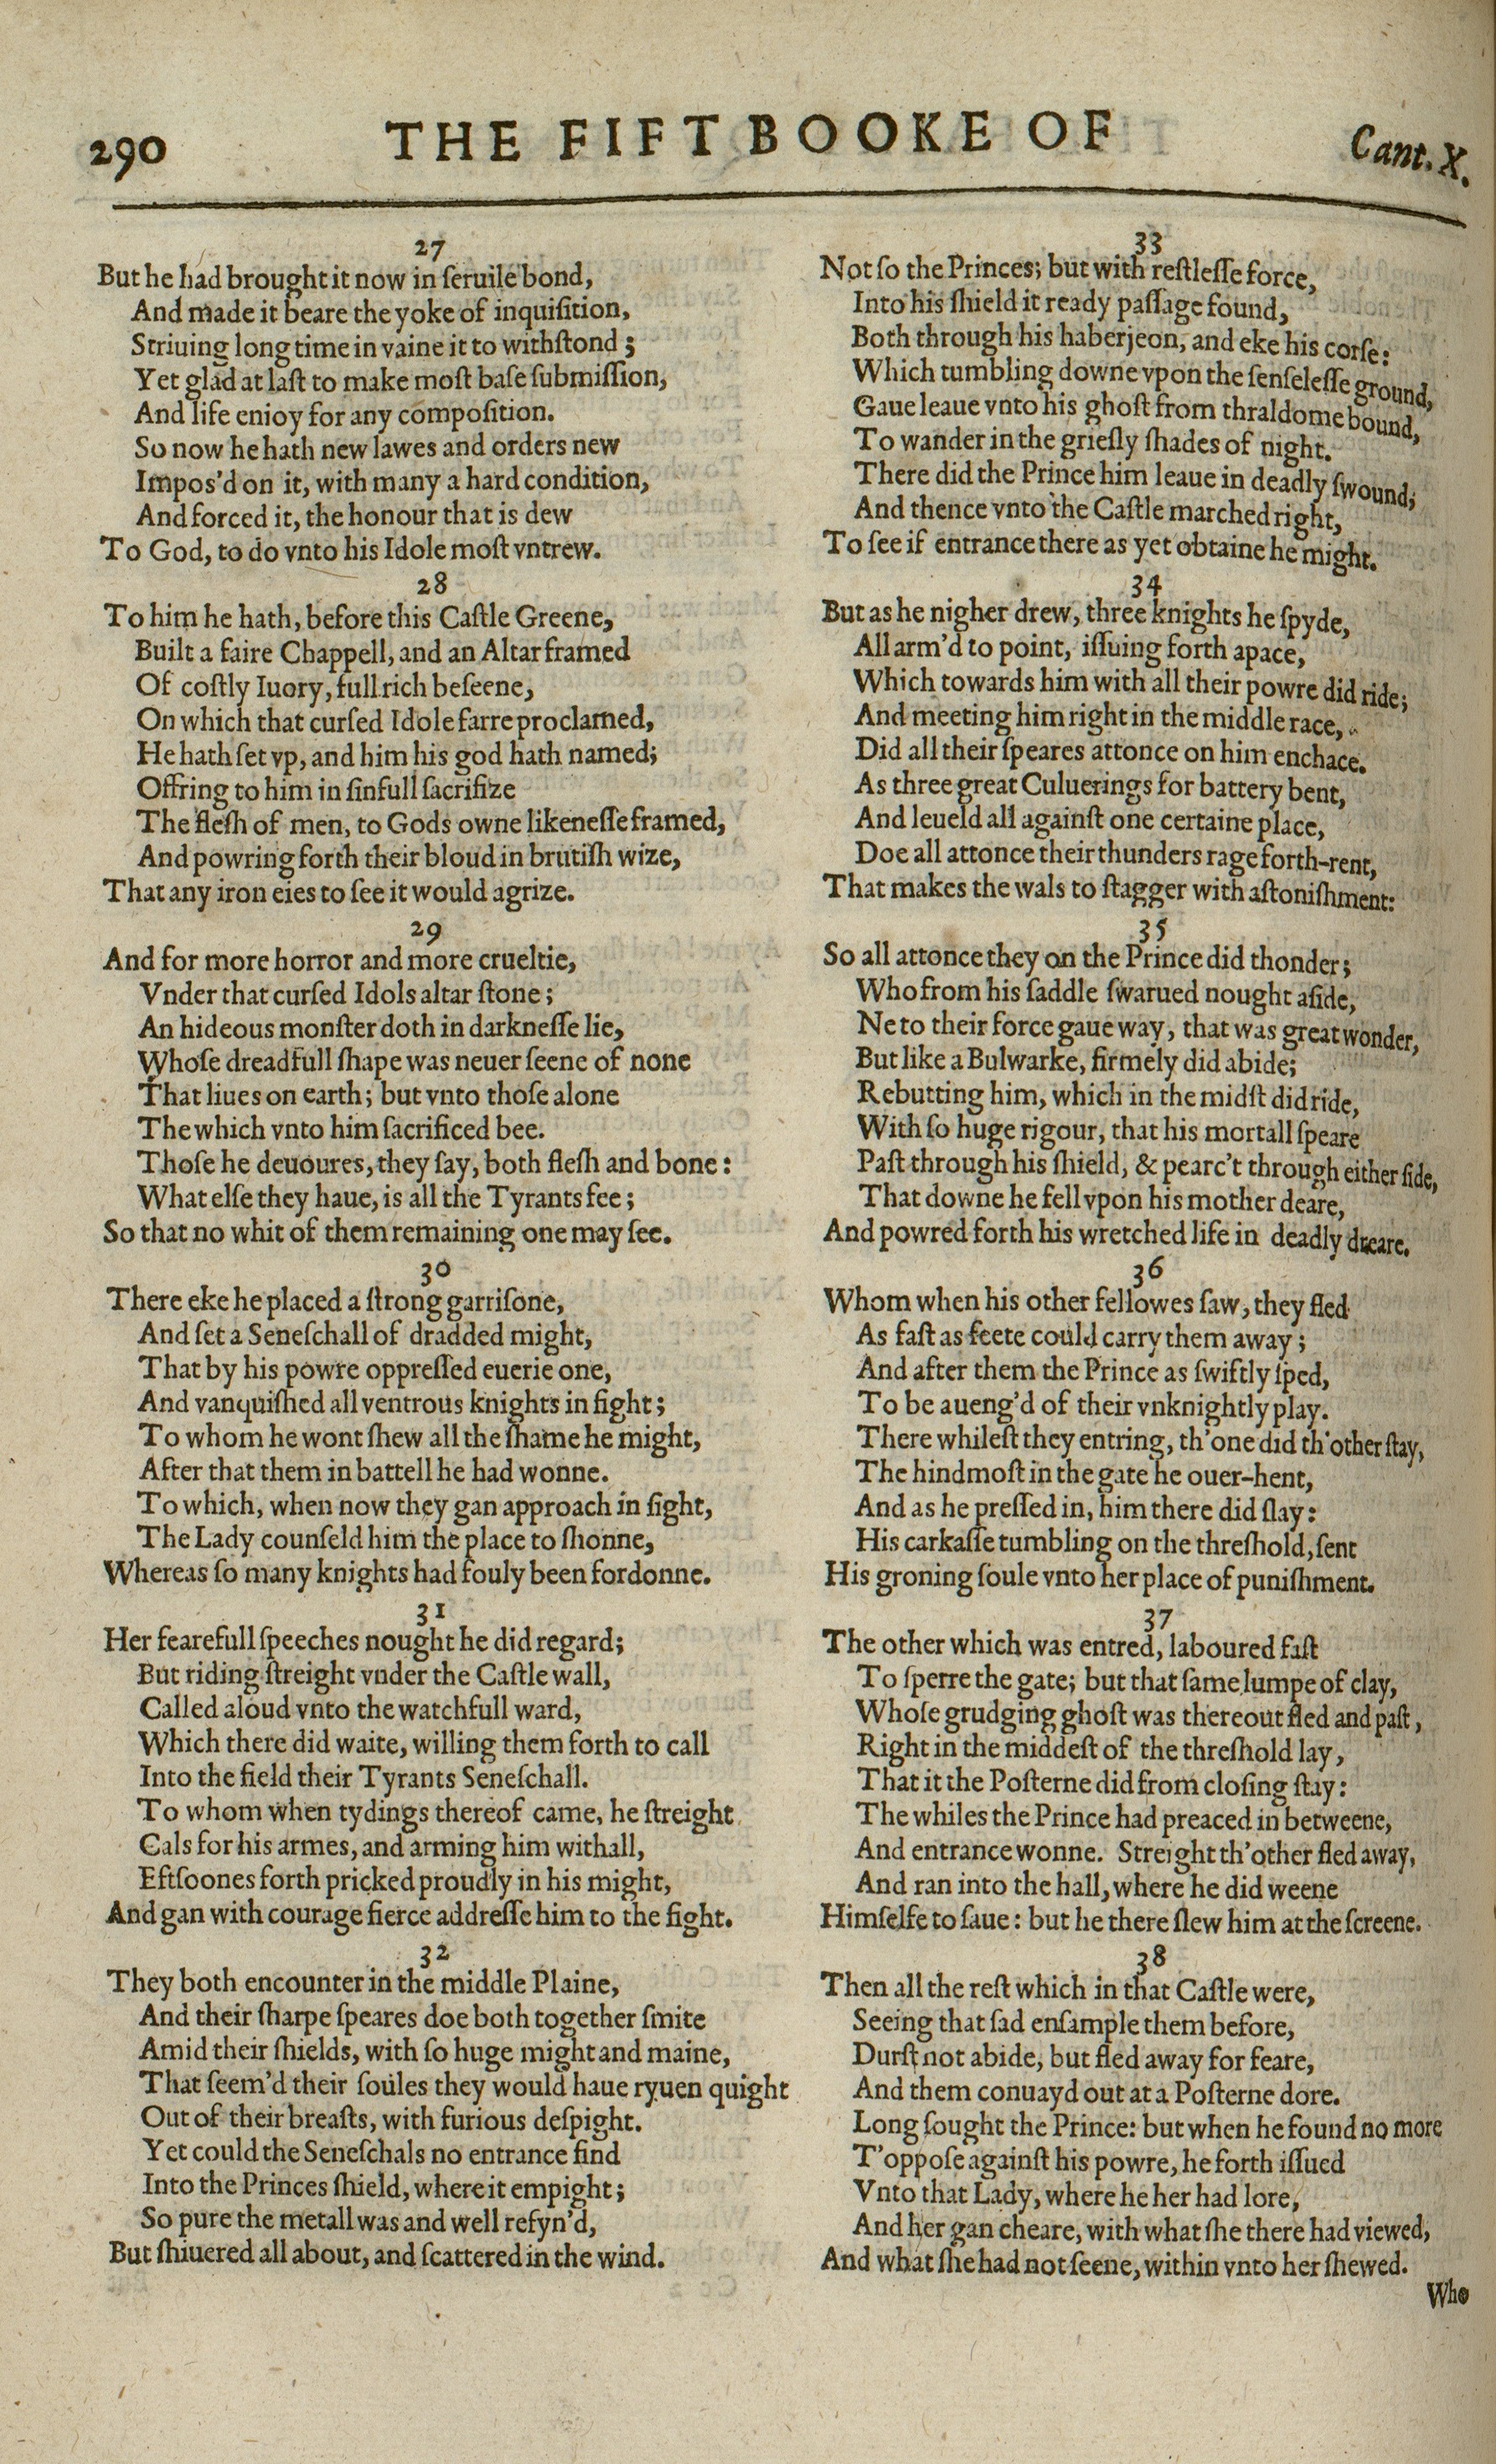 290
THE FIFT BOOKE OF
Cant. X.
27
But he had brought it now in ſeruile bond,
And made it beare the yoke of inquiſition,
Striuing long time in vaine it to withſtond;
Yet glad at laſt to make moſt baſe ſubmiſſion,
And life enioy for any compoſition.
So now he hath new lawes and orders new
Impos'd on it, with many a hard condition,
And forced it, the honour that is dew
To God, to do vnto his Idole moſt vntrew.
28
To him he hath, before this Caſtle Greene,
Built a faire Chappell, and an Altar framed
Of coſtly Iuory, full rich beſeene,
On which that curſed Idole farre proclamed,
He hath ſet vp, and him his god hath named;
Offring to him in ſinfull ſacrifize
The fleſh of men, to Gods owne likeneſſe framed,
And powring forth their bloud in brutiſh wize,
That any iron eies to ſee it would agrize.
29
And for more horror and more crueltie,
Vnder that curſed Idols altar ſtone;
An hideous monſter doth in darkneſſe lie,
Whoſe dreadfull ſhape was neuer ſeene of none
That liues on earth; but vnto thoſe alone
The which vnto him ſacrificed bee.
Thoſe he deuoures, they ſay, both fleſh and bone:
What elſe they haue, is all the Tyrants fee;
So that no whit of them remaining one may ſee.
30
There eke he placed a ſtrong garriſone,
And ſet a Seneſchall of dradded might,
That by his powre oppreſſed euerie one,
And vanquiſhed all ventrous knights in fight;
To whom he wont ſhew all the ſhame he might,
After that them in battell he had wonne.
To which, when now they gan approach in ſight,
The Lady counſeld him the place to ſhonne,
Whereas ſo many knights had fouly been fordonne.
31
Her fearefull ſpeeches nought he did regard;
But riding ſtreight vnder the Caſtle wall,
Called aloud vnto the watchfull ward,
Which there did waite, willing them forth to call
Into the field their Tyrants Seneſchall.
To whom when tydings thereof came, he ſtreight
Cals for his armes, and arming him withall,
Eftſoones forth pricked proudly in his might,
And gan with courage fierce addreſſe him to the fight.
32
They both encounter in the middle Plaine,
And their ſharpe ſpeares doe both together ſmite
Amid their ſhields, with ſo huge might and maine,
That ſeem'd their ſoules they would haue ryuen quight
Out of their breaſts, with furious deſpight.
Yet could the Seneſchals no entrance find
Into the Princes ſhield, where it empight;
So pure the metall was and well refyn'd,
But ſhiuered all about, and ſcattered in the wind.
33
Not ſo the Princes; but with reſtleſſe force,
Into his ſhield it ready paſſage found,
Both through his haberjeon, and eke his corſe:
Which tumbling downe vpon the ſenſeleſſe ground,
Gaue leaue vnto his ghoſt from thraldome bound,
To wander in the grieſly ſhades of night.
There did the Prince him leaue in deadly ſwound;
And thence vnto the Caſtle marched right,
To ſee if entrance there as yet obtaine he might.
34
But as he nigher drew, three knights he ſpyde,
All arm'd to point, iſſuing forth apace,
Which towards him with all their powre did ride;
And meeting him right in the middle race,
Did all their ſpeares attonce on him enchace.
As three great Culuerings for battery bent,
And leueld all againſt one certaine place,
Doe all attonce their thunders rage forth-rent,
That makes the wals to ſtagger with aſtoniſhment:
35
So all attonce they on the Prince did thonder;
Who from his ſaddle ſwarued nought aſide,
Ne to their force gaue way, that was great wonder,
But like a Bulwarke, firmely did abide;
Rebutting him, which in the midſt did ride,
With ſo huge rigour, that his mortall ſpeare
Paſt through his ſhield, & pearc't through either ſide,
That downe he fell vpon his mother deare,
And powred forth his wretched life in deadly dreare.
36
Whom when his other fellowes ſaw, they fled
As faſt as feete could carry them away;
And after them the Prince as ſwiftly ſped,
To be aueng'd of their vnknightly play.
There whileſt they entring, th'one did th'other ſtay,
The hindmoſt in the gate he ouer-hent,
And as he preſſed in, him there did ſlay:
His carkaſſe tumbling on the threſhold, ſent
His groning ſoule vnto her place of puniſhment.
37
The other which was entred, laboured faſt
To ſperre the gate; but that ſame lumpe of clay,
Whoſe grudging ghoſt was thereout fled and paſt,
Right in the middeſt of the threſhold lay,
That it the Poſterne did from cloſing ſtay:
The whiles the Prince had preaced in betweene,
And entrance wonne. Streight th'other fled away,
And ran into the hall, where he did weene
Himſelfe to ſaue: but he there ſlew him at the ſcreene.
38
Then all the reſt which in that Caſtle were,
Seeing that ſad enſample them before,
Durſt not abide, but fled away for feare,
And them conuayd out at a Poſterne dore.
Long ſought the Prince: but when he found no more
T'oppoſe againſt his powre, he forth iſſued
Vnto that Lady, where he her had lore,
And her gan cheare, with what ſhe there had viewed,
And what ſhe had not ſeene, within vnto her ſhewed.
Who